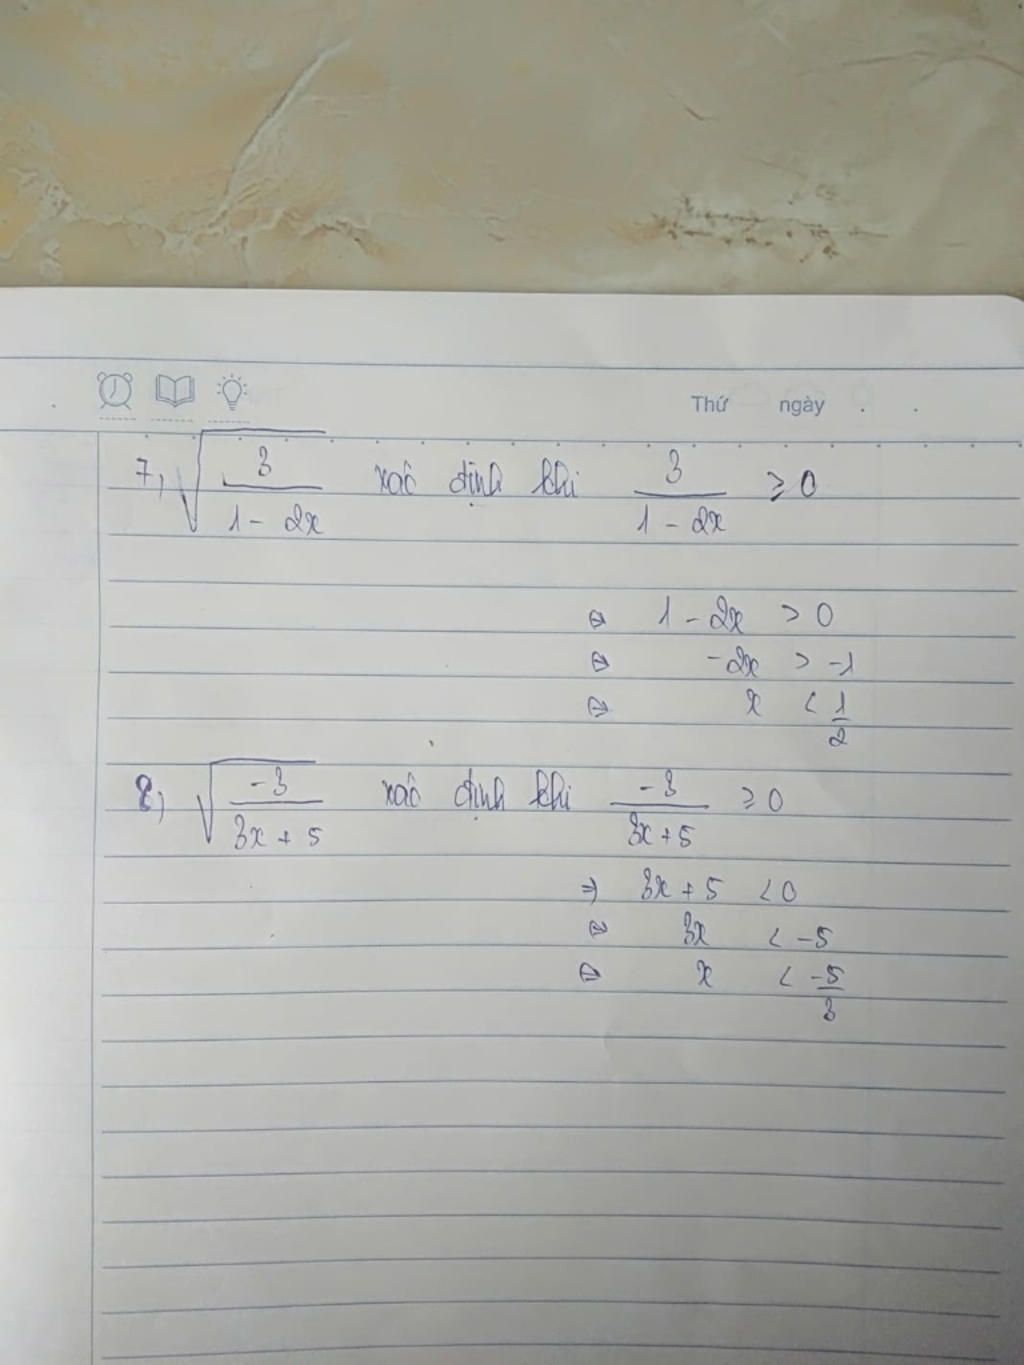 Thứ ngày . .
7, √(3/(1 - 2x)) xác định khi 3/(1 - 2x) ≥ 0
⇔ 1 - 2x > 0
⇔ -2x > -1
⇔ x < 1/2
8, √(-3/(3x + 5)) xác định khi -3/(3x + 5) ≥ 0
⇒ 3x + 5 < 0
⇔ 3x < -5
⇔ x < -5/3